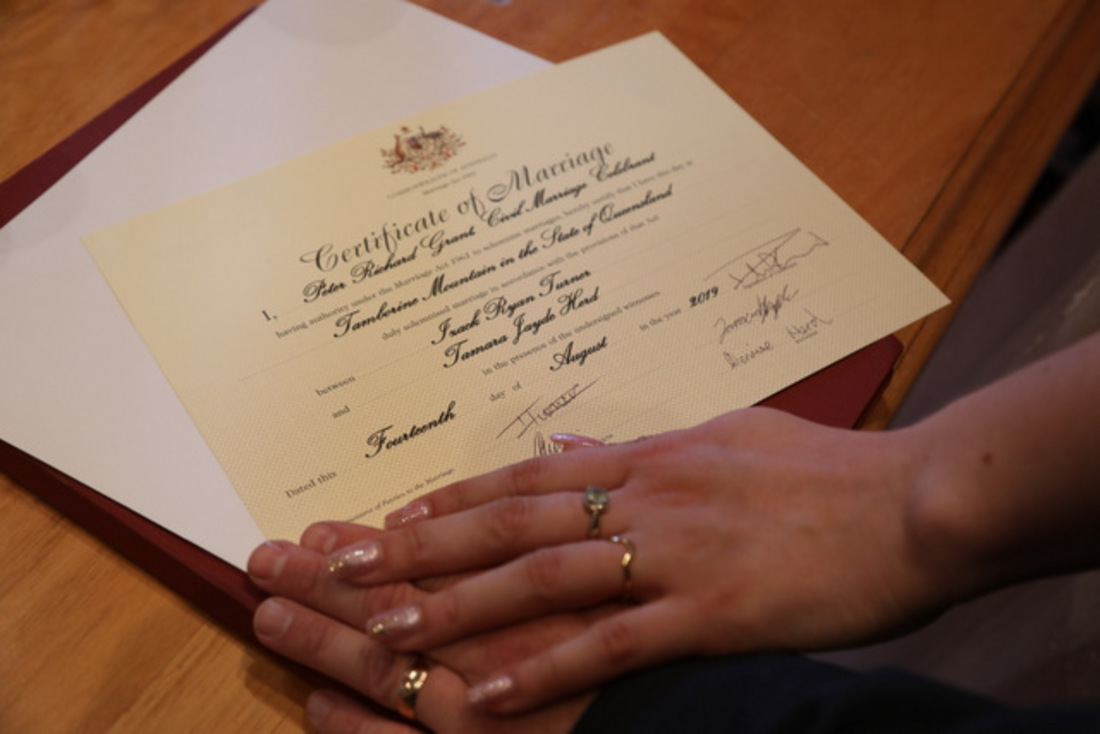 COMMONWEALTH OF AUSTRALIA
Marriage Act 1961
Certificate of Marriage
I, Peter Richard Grant, Civil Marriage Celebrant
having authority under the Marriage Act 1961 to solemnise marriages, hereby certify that I have this day at
Tamborine Mountain in the State of Queensland
duly solemnised marriage in accordance with the provisions of that Act
between Izack Ryan Turner
and Tamara Jayde Herd
in the presence of the undersigned witnesses.
Dated this Fourteenth day of August in the year 2019
of Parties to the Marriage